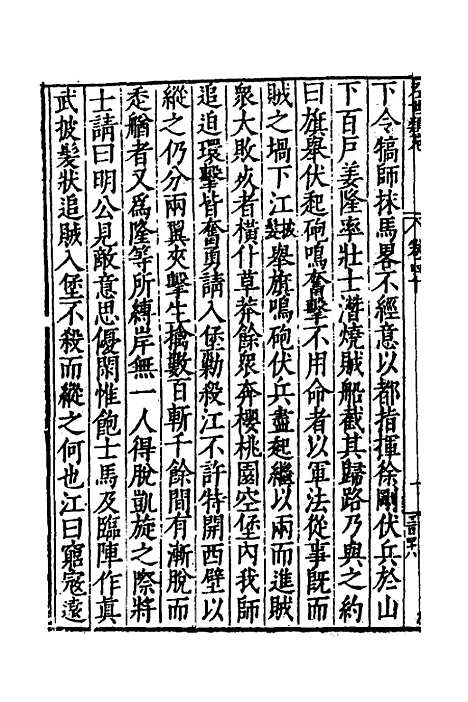 下令犒師抹馬畧不經意以都指揮徐剛伏兵於山
下百戶姜隆率壯士潛燒賊船截其歸路乃與之約
曰旗舉伏起砲鳴奮擊不用命者以軍法從事既而
賊之堝下江披髮舉旗鳴砲伏兵盡起繼以兩而進賊
衆大敗㱙者橫仆草莽餘衆奔櫻桃園空堡內我師
追迫環擊皆奮勇請入堡勦殺江不許特開西壁以
縱之仍分兩翼夾擊生擒數百斬千餘間有漸脫而
走艏者又爲隆等所縛岸無一人得脫凱旋之際將
士請曰明公見敵意思優閑惟飽士馬及臨陣作真
武披髮狀追賊入堡不殺而縱之何也江曰窮寇遠